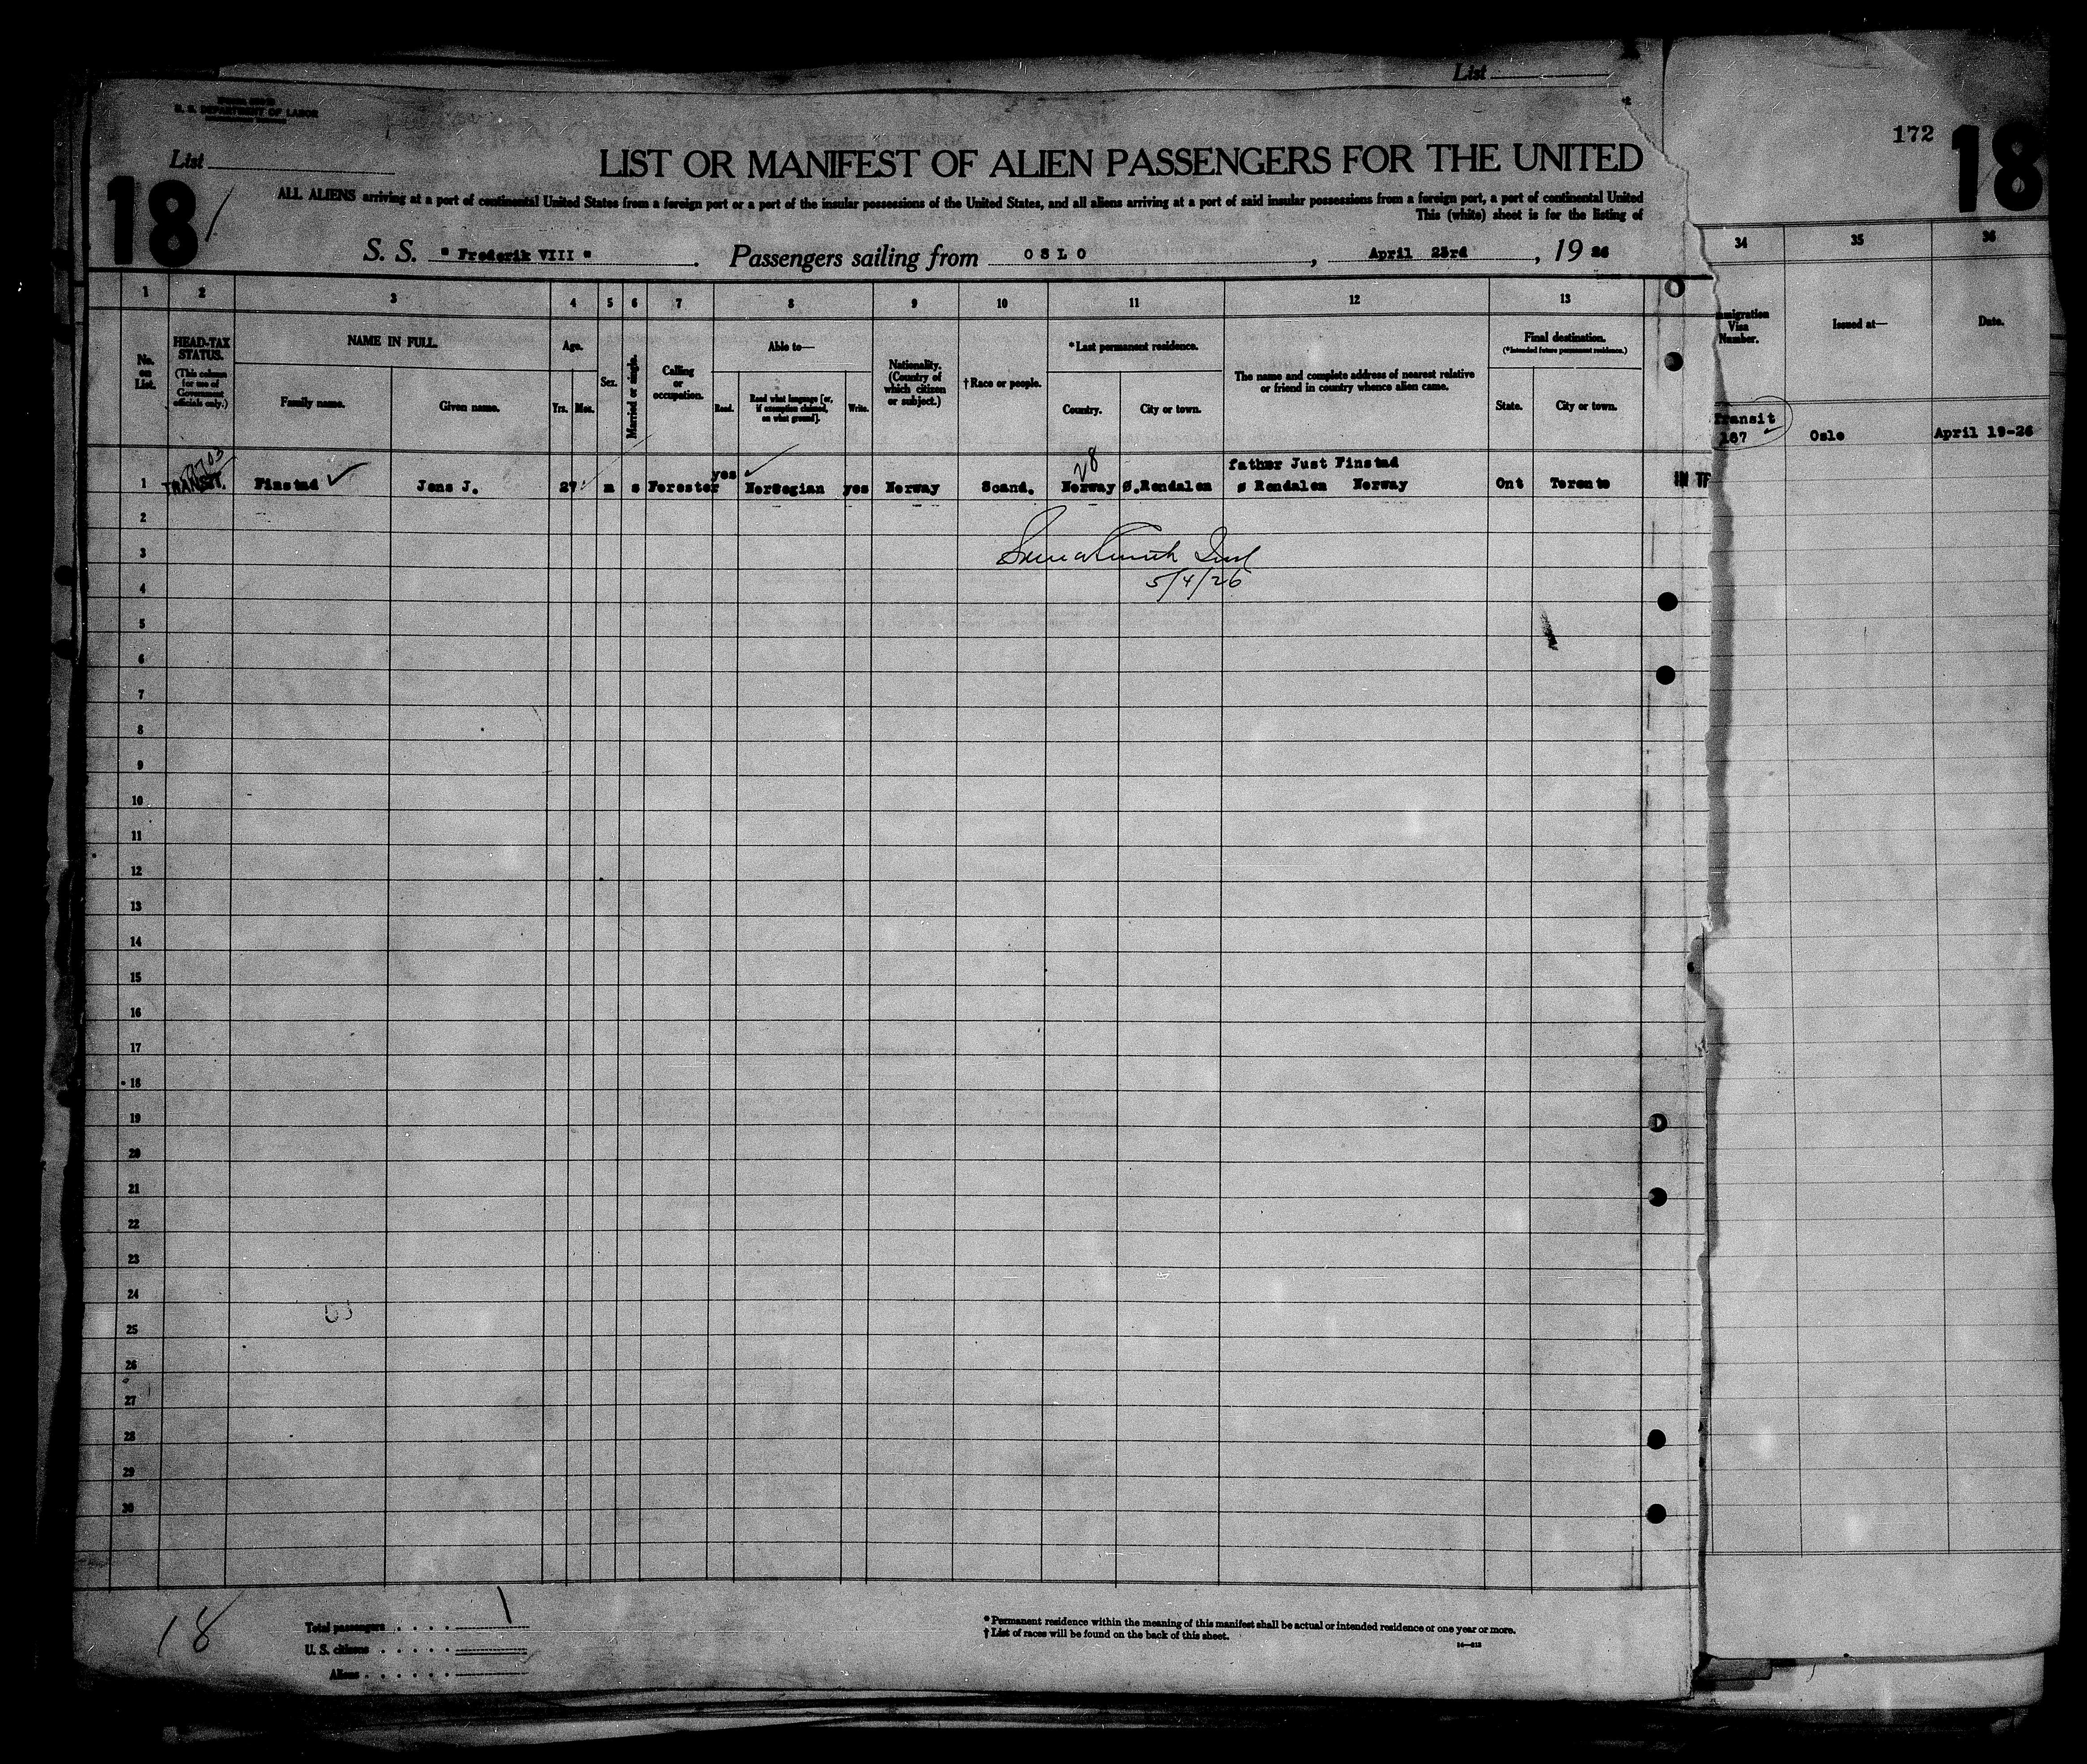 List
U. S. DEPARTMENT OF LABOR
List
172
18
18
LIST OR MANIFEST OF ALIEN PASSENGERS FOR THE UNITED
ALL ALIENS arriving at a port of continental United States from a foreign port or a part of the insular possessions of the United States, and all aliens arriving at a port of said insular possessions from a foreign port, a part of continental United
This (white) sheet is for the listing of
S. S. "Frederik VIII" Passengers sailing from OSLO, April 23rd, 1926
1 2 3 4 5 6 7 8 9 10 11 12 13 34 35 36
No. on List.
HEAD-TAX STATUS. (This column for use of Government officials only.)
NAME IN FULL.
Family name. Given name.
Age.
Yrs. Mos.
Sex.
Married or single.
Calling or occupation.
Able to—
Read. Read what language [or, if exemption claimed, on what ground]. Write.
Nationality. (Country of which citizen or subject.)
†Race or people.
*Last permanent residence.
Country. City or town.
The name and complete address of nearest relative or friend in country whence alien came.
Final destination.
(*Intended future permanent residence.)
State. City or town.
mmigration Visa Number.
Issued at—
Date.
Transit
187 Oslo April 19-26
28
yes father Just Finstad
1 TRANSIT. Finstad Jens J. 27 m s Forester Norwegian yes Norway Scand. Norway Ø.Rendalen Ø Rendalen Norway Ont Toronto IN TR
2
3
5/4/26
4
5
6
7
8
9
10
11
12
13
14
15
16
17
18
19
20
21
22
23
24
25
26
27
28
29
30
18
Total passengers . . . . 1
U. S. citizens . . . . .
Aliens . . . . . .
* Permanent residence within the meaning of this manifest shall be actual or intended residence of one year or more.
† List of races will be found on the back of this sheet.